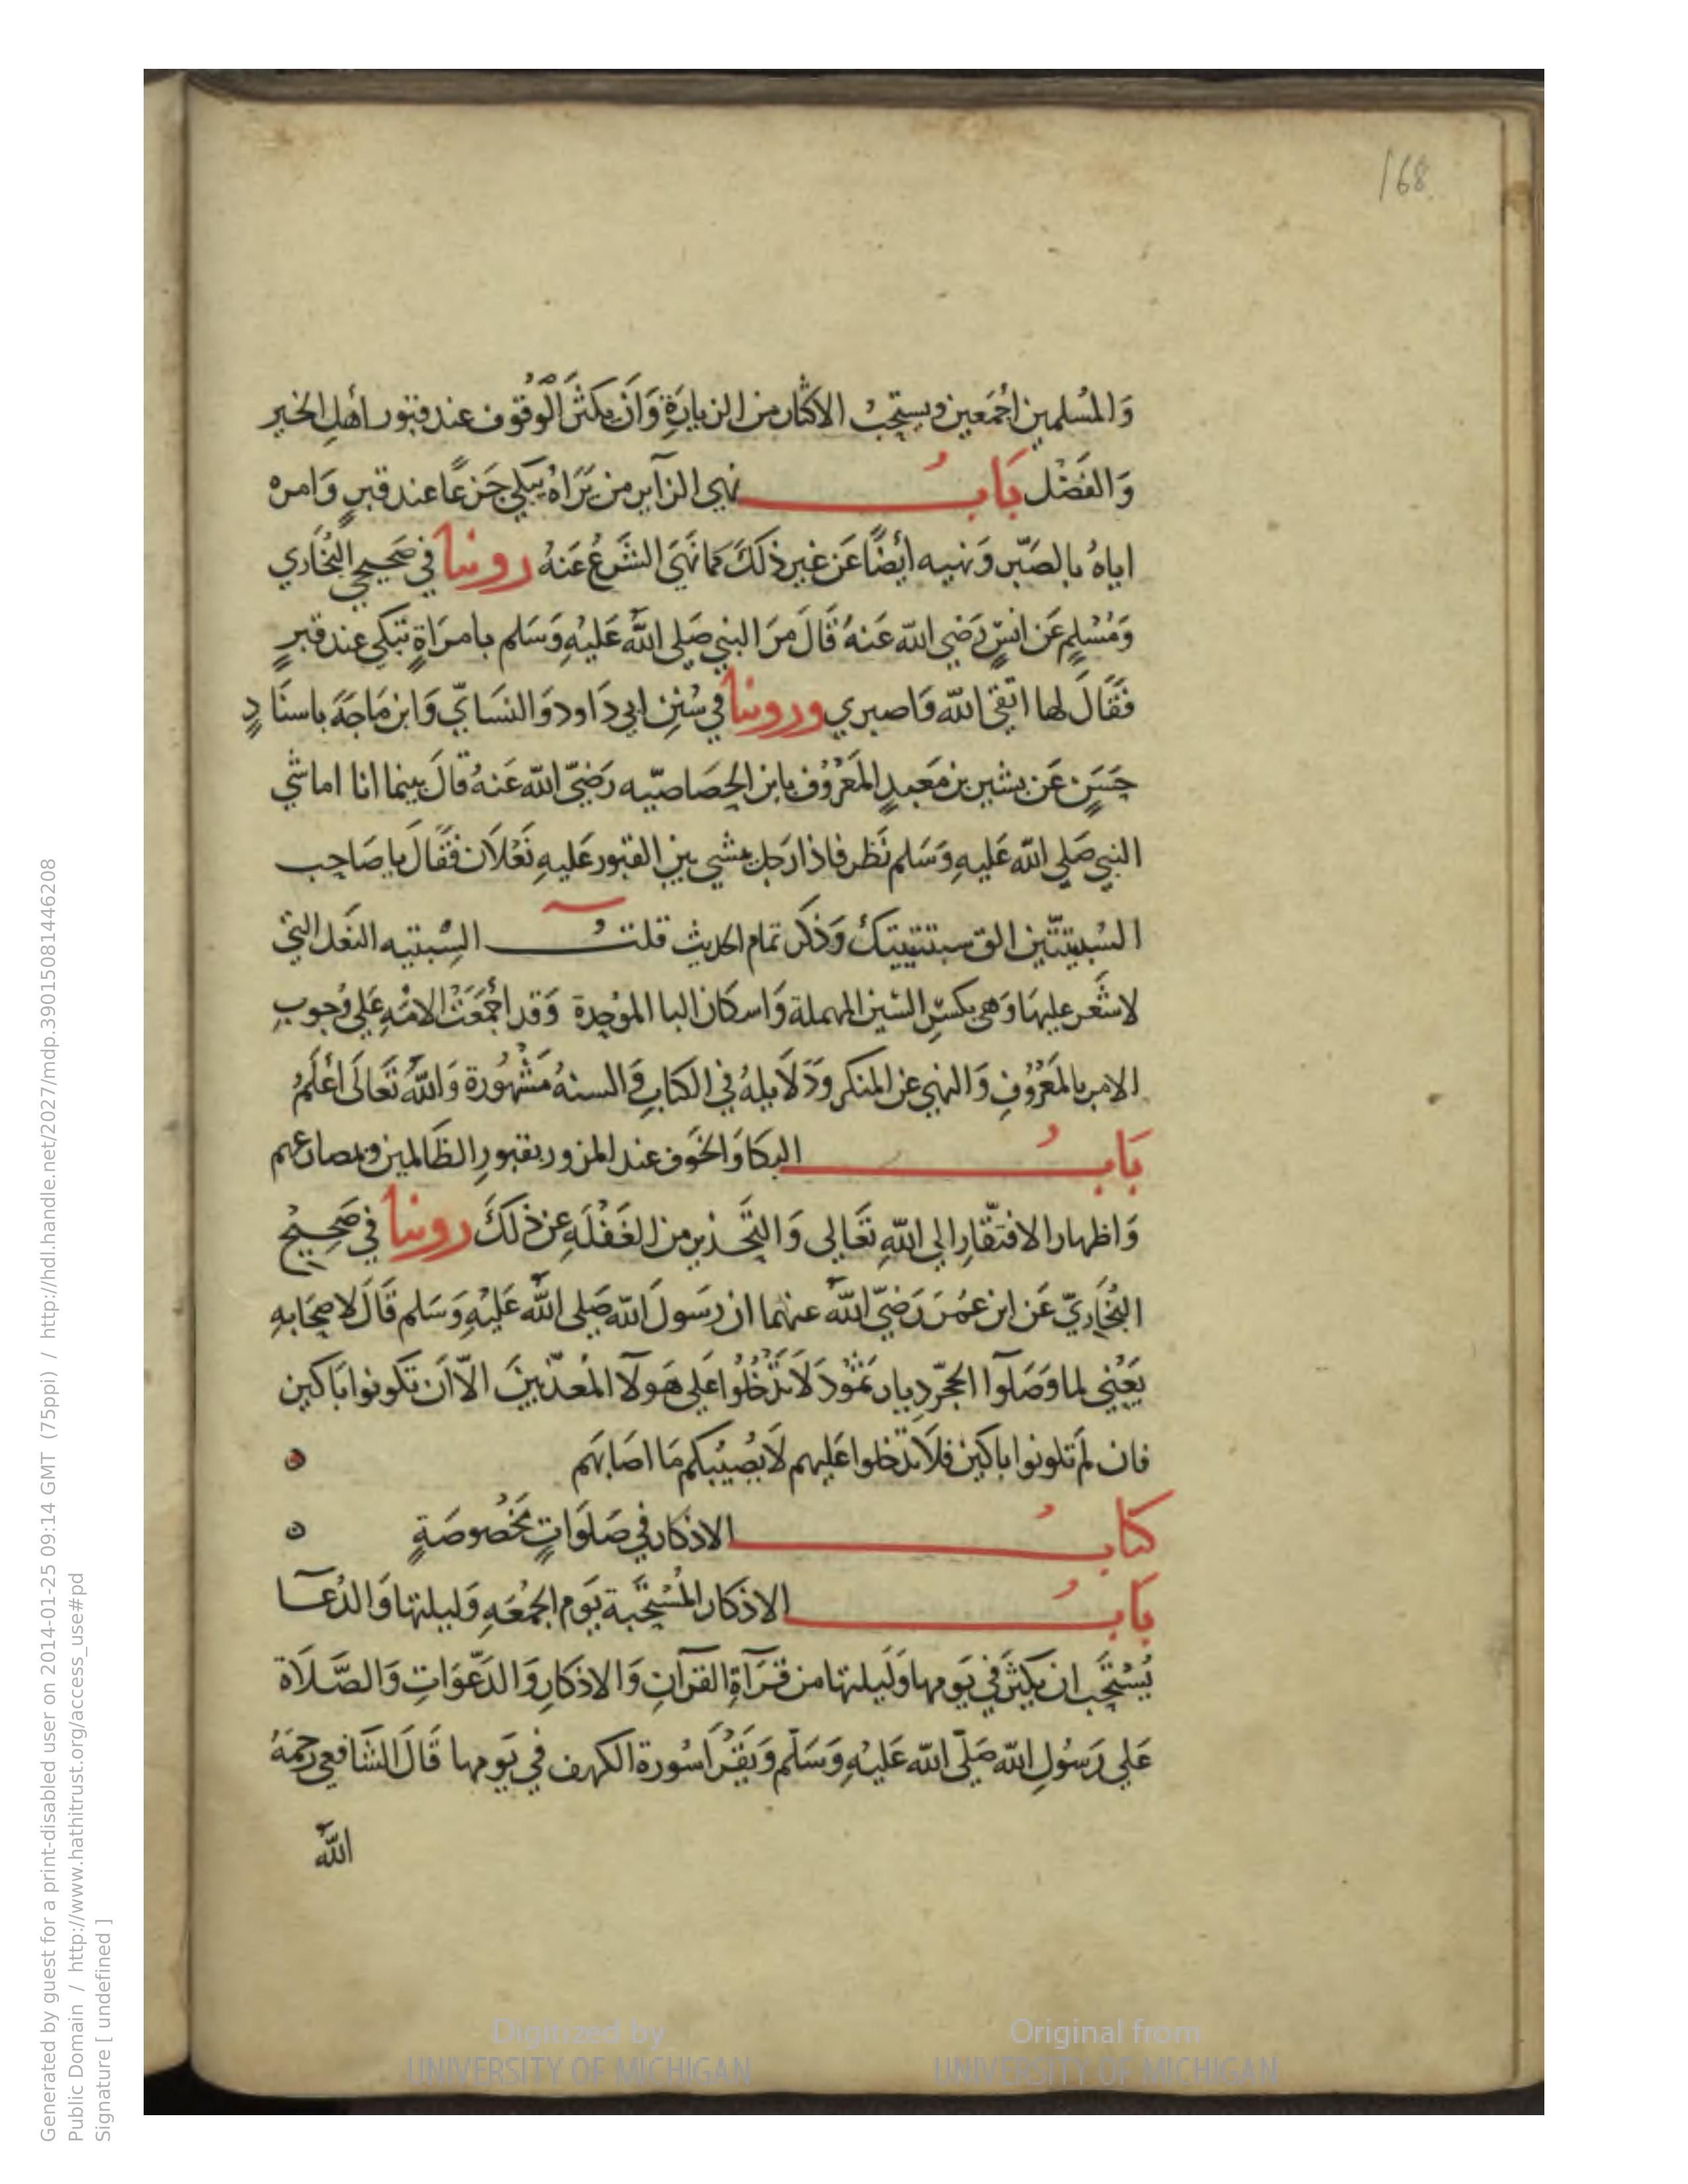 168
وَالمُسلمين اجْمَعين ويستحبُ الاكثار من الزيارَةِ وَان يكثرَ الْوُقوف عند قبور أهلِ الخير
وَالفَضْل بَابُ نهي الزآير من يَرَاهُ يبكي جَزعًا عند قبرٍ وَامره
اياهُ بالصَبْر وَنهيه أيضًا عَن غير ذلكَ مما نَهَىَ الشرعُ عَنهُ روينا في صَحيحي البُخَاري
وَمُسْلِم عَن انسٍ رَضي الله عَنهُ قَالَ مَر النبي صَلى اللهُ عَليْهِ وَسَلم بامرَاةٍ تبكي عند قبرٍ
فَقَالَ لها اتقى الله وَاصبري وروينا في سُنن ابي دَاود وَالنسَائيّ وَابن مَاجَةَ باسنَادٍ
حَسَنٍ عَن بشير بن مَعبدٍ المَعْرُوف بابن الخصَاصيّه رَضيَ الله عَنهُ قالَ بينما انا اماشي
النبي صَلى الله عَليهِ وَسَلم نَظر فاذا رَجل يمشي بين القبور عَليهِ نَعْلَان فقَالَ يا صَاحِب
السْبِتيّتين الق سبتيتيك وَذكَر تمام الحديث قلتُ السِبْتيه النعَل التي
لا شَعر عليهَا وَهي بكسْرِ السّين المهملة وَاسكان البا الموُحِدة وَقد اجْمَعَتْ الامُه عَلي وُجوبِ
الامر بالمَعْرُوفِ وَالنهي عن المنكر وَدَلَايله في الكتابِ وَالسنهُ مَشْهُورة وَاللهُ تَعَالَى أعْلَمُ
بَابُ البكا وَالخوَف عند المرور بقبورِ الظَالمين وبمصارعهم
وَاظهار الافتقَارِ الي اللهِ تَعَالى وَالتحَذير من الغَفْلَهِ عن ذلكَ روينا في صَحِيْح
البُخَاريّ عَن ابن عمُرَ رَضيَ اللهُ عنهما ان رَسَولَ الله صَلى اللهُ عَليْهِ وَسَلم قَالَ لاصحَابهِ
يَعْني لما وَصَلوا الحِجْر دِيار ثمُودَ لَا تَدْخُلُوا عَلي هَولَا المعذّبينَ الّا اَن تكونوا بَاكين
فان لَم تكونوا باكين فلَا تدخلوا عَليهم لَا يُصِيْبكم مَا اصَابَهم ه
كتابُ الاذكار في صَلوَاتٍ مخَصُوصَةٍ ه
بَابُ الاذكار المُسْتَحبة يَوم الجُمُعَهِ وَليلتها وَالدُعَآ
يُسْتَحَب ان يكثرَ في يَومها وَلَيلتها من قرَآةِ القرآنِ وَالاذكارِ وَالدَعْوَاتِ وَالصَّلَاة
عَلي رَسُولِ الله صَلّى الله عَليْهِ وَسَلّم وَيَقْرَا سُورة الكهف في يَومها قَالَ الشَافعي رَحمَهُ
اللهُ
Generated by guest for a print-disabled user on 2014-01-25 09:14 GMT (75ppi) / http://hdl.handle.net/2027/mdp.39015081446208
Public Domain / http://www.hathitrust.org/access_use#pd
Signature [ undefined ]
Digitized by
UNIVERSITY OF MICHIGAN
Original from
UNIVERSITY OF MICHIGAN